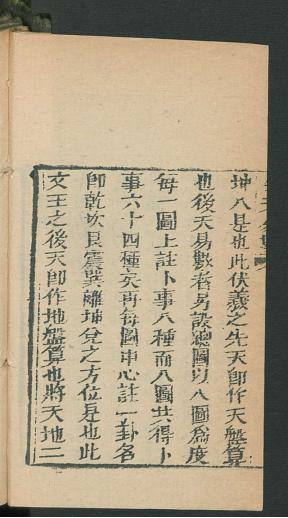 坤八是也此伏羲之先天卽作天盤算
也後天易數者另設總圖以八圖爲度
每一圖上註卜事八種而八圖共得卜
事六十四種矣再每圖中心註一卦名
卽乾坎艮震巽離坤兌之方位是也此
文王之後天卽作地盤算也將天地二